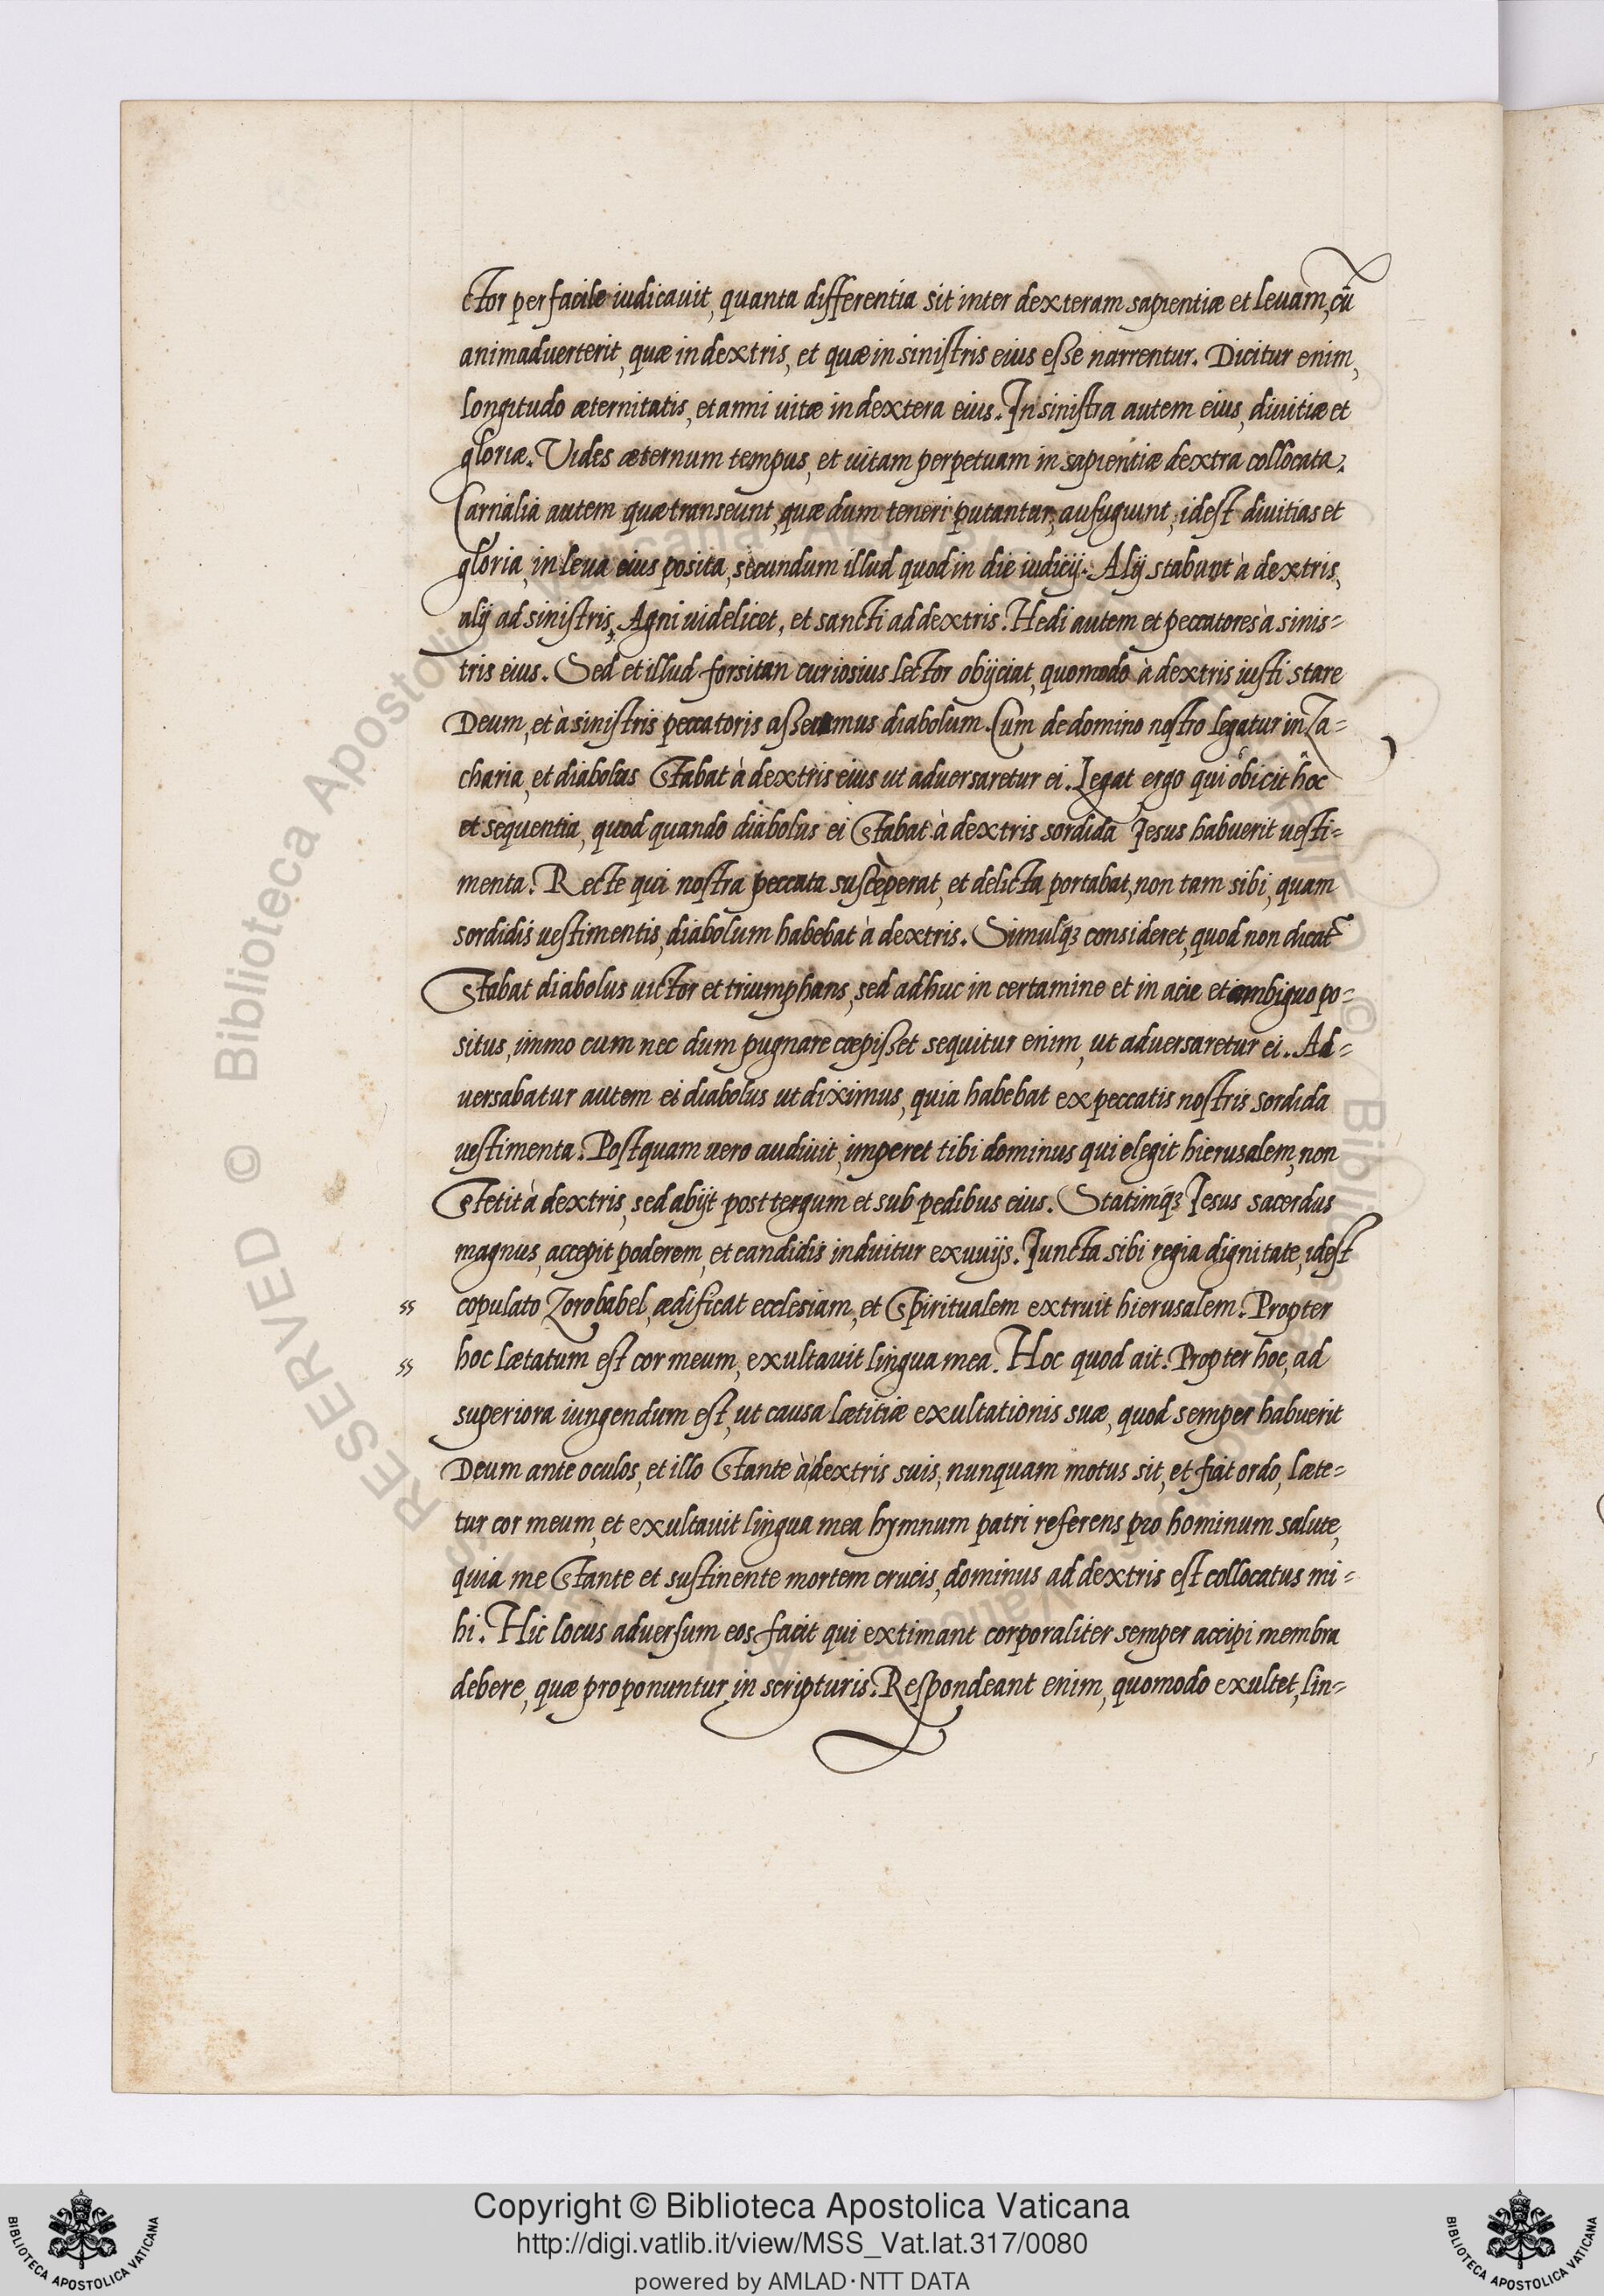 ctor perfacile iudicauit, quanta differentia sit inter dexteram sapientiæ et leuam, cū
animaduerterit, quæ in dextris, et quæ in sinistris eius esse narrentur. Dicitur enim,
longitudo æternitatis, et anni uitæ in dextera eius. In sinistra autem eius, diuitiæ et
gloriæ. Vides æternum tempus, et uitam perpetuam in sapientiæ dextra collocata.
Carnalia autem quæ transeunt, quæ dum teneri putantur, aufugiunt, idest diuitias et
gloria, in leua eius posita, secundum illud quod in die iudicij. Alij stabunt à dextris,
alij ad sinistris, Agni uidelicet, et sancti ad dextris. Hedi autem et peccatores à sinis=
tris eius. Sed et illud forsitan curiosius lector obijciat, quomodo à dextris iusti stare
Deum, et à sinistris peccatoris asseramus diabolum. Cum de domino nostro legatur in Za=
charia, et diabolus Stabat à dextris eius ut aduersaretur ei. Legat ergo qui obicit hoc
et sequentia, quod quando diabolus ei Stabat à dextris sordida Jesus habuerit uesti=
menta. Recte qui nostra peccata susceperat, et delicta portabat, non tam sibi, quam
sordidis uestimentis, diabolum habebat à dextris. Simulqȝ consideret, quod non dicat
Stabat diabolus uictor et triumphans, sed adhuc in certamine et in acie et ambiguo po=
situs, immo cum nec dum pugnare cæpisset sequitur enim, ut aduersaretur ei. Ad=
uersabatur autem ei diabolus ut diximus, quia habebat ex peccatis nostris sordida
uestimenta. Postquam uero audiuit, imperet tibi dominus qui elegit hierusalem, non
Stetit à dextris, sed abijt post tergum et sub pedibus eius. Statimqȝ Jesus sacerdus
magnus, accepit poderem, et candidis induitur exuuijs. Juncta sibi regia dignitate, idest
ss copulato Zorobabel, ædificat ecclesiam, et Spiritualem extruit hierusalem. Propter
ss hoc lætatum est cor meum, exultauit lingua mea. Hoc quod ait. Propter hoc, ad
superiora iungendum est, ut causa lætitiæ exultationis suæ, quod semper habuerit
Deum ante oculos, et illo Stante à dextris suis, nunquam motus sit, et fiat ordo, læte=
tur cor meum, et exultauit lingua mea hymnum patri referens pro hominum salute,
quia me Stante et sustinente mortem crucis, dominus ad dextris est collocatus mi=
hi. Hic locus aduersum eos facit qui extimant corporaliter semper accipi membra
debere, quæ proponuntur in scripturis. Respondeant enim, quomodo exultet, lin=
Copyright © Biblioteca Apostolica Vaticana
http://digi.vatlib.it/view/MSS_Vat.lat.317/0080
powered by AMLAD·NTT DATA
BIBLIOTECA APOSTOLICA VATICANA
BIBLIOTECA APOSTOLICA VATICANA